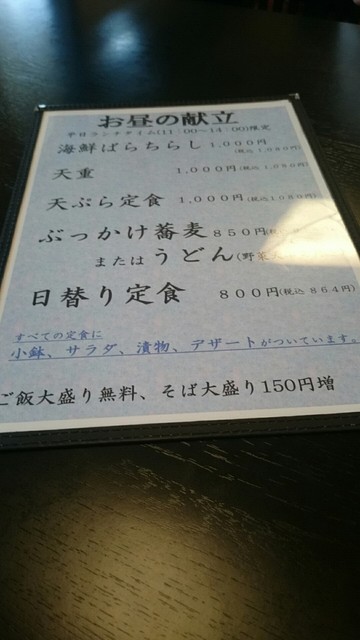 お昼の献立
平日ランチタイム(11:00〜14:00)限定
海鮮ばらちらし 1,000円
(税込 1,080円)
天重 1,000円(税込 1,080円)
天ぷら定食 1,000円(税込1080円)
ぶっかけ蕎麦 850円
または うどん(野菜
日替り定食 800円(税込 864円)
すべての定食に
小鉢、サラダ、漬物、デザートがついています。
ご飯大盛り無料、そば大盛り150円増